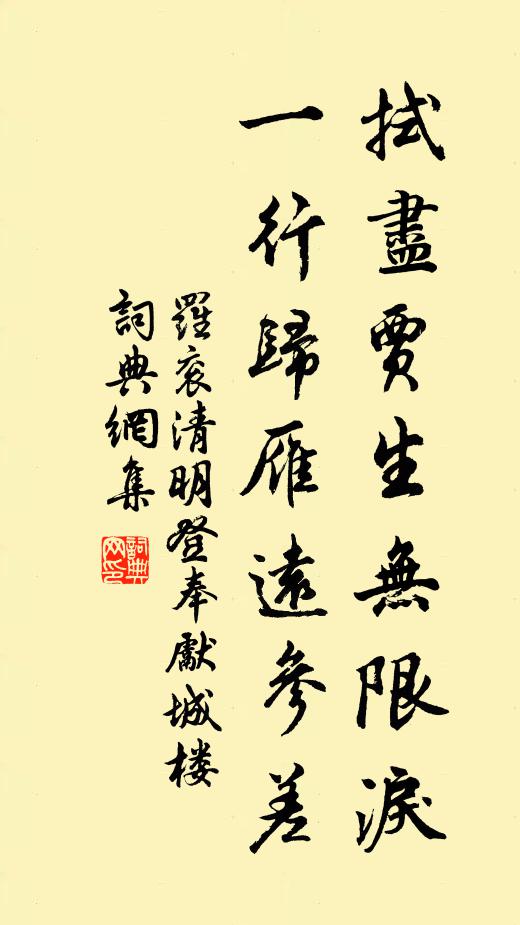 拭盡賈生無限淚
一行歸雁遠參差
羅衮清明登奉獻城楼
詞典網集
詞典
网印